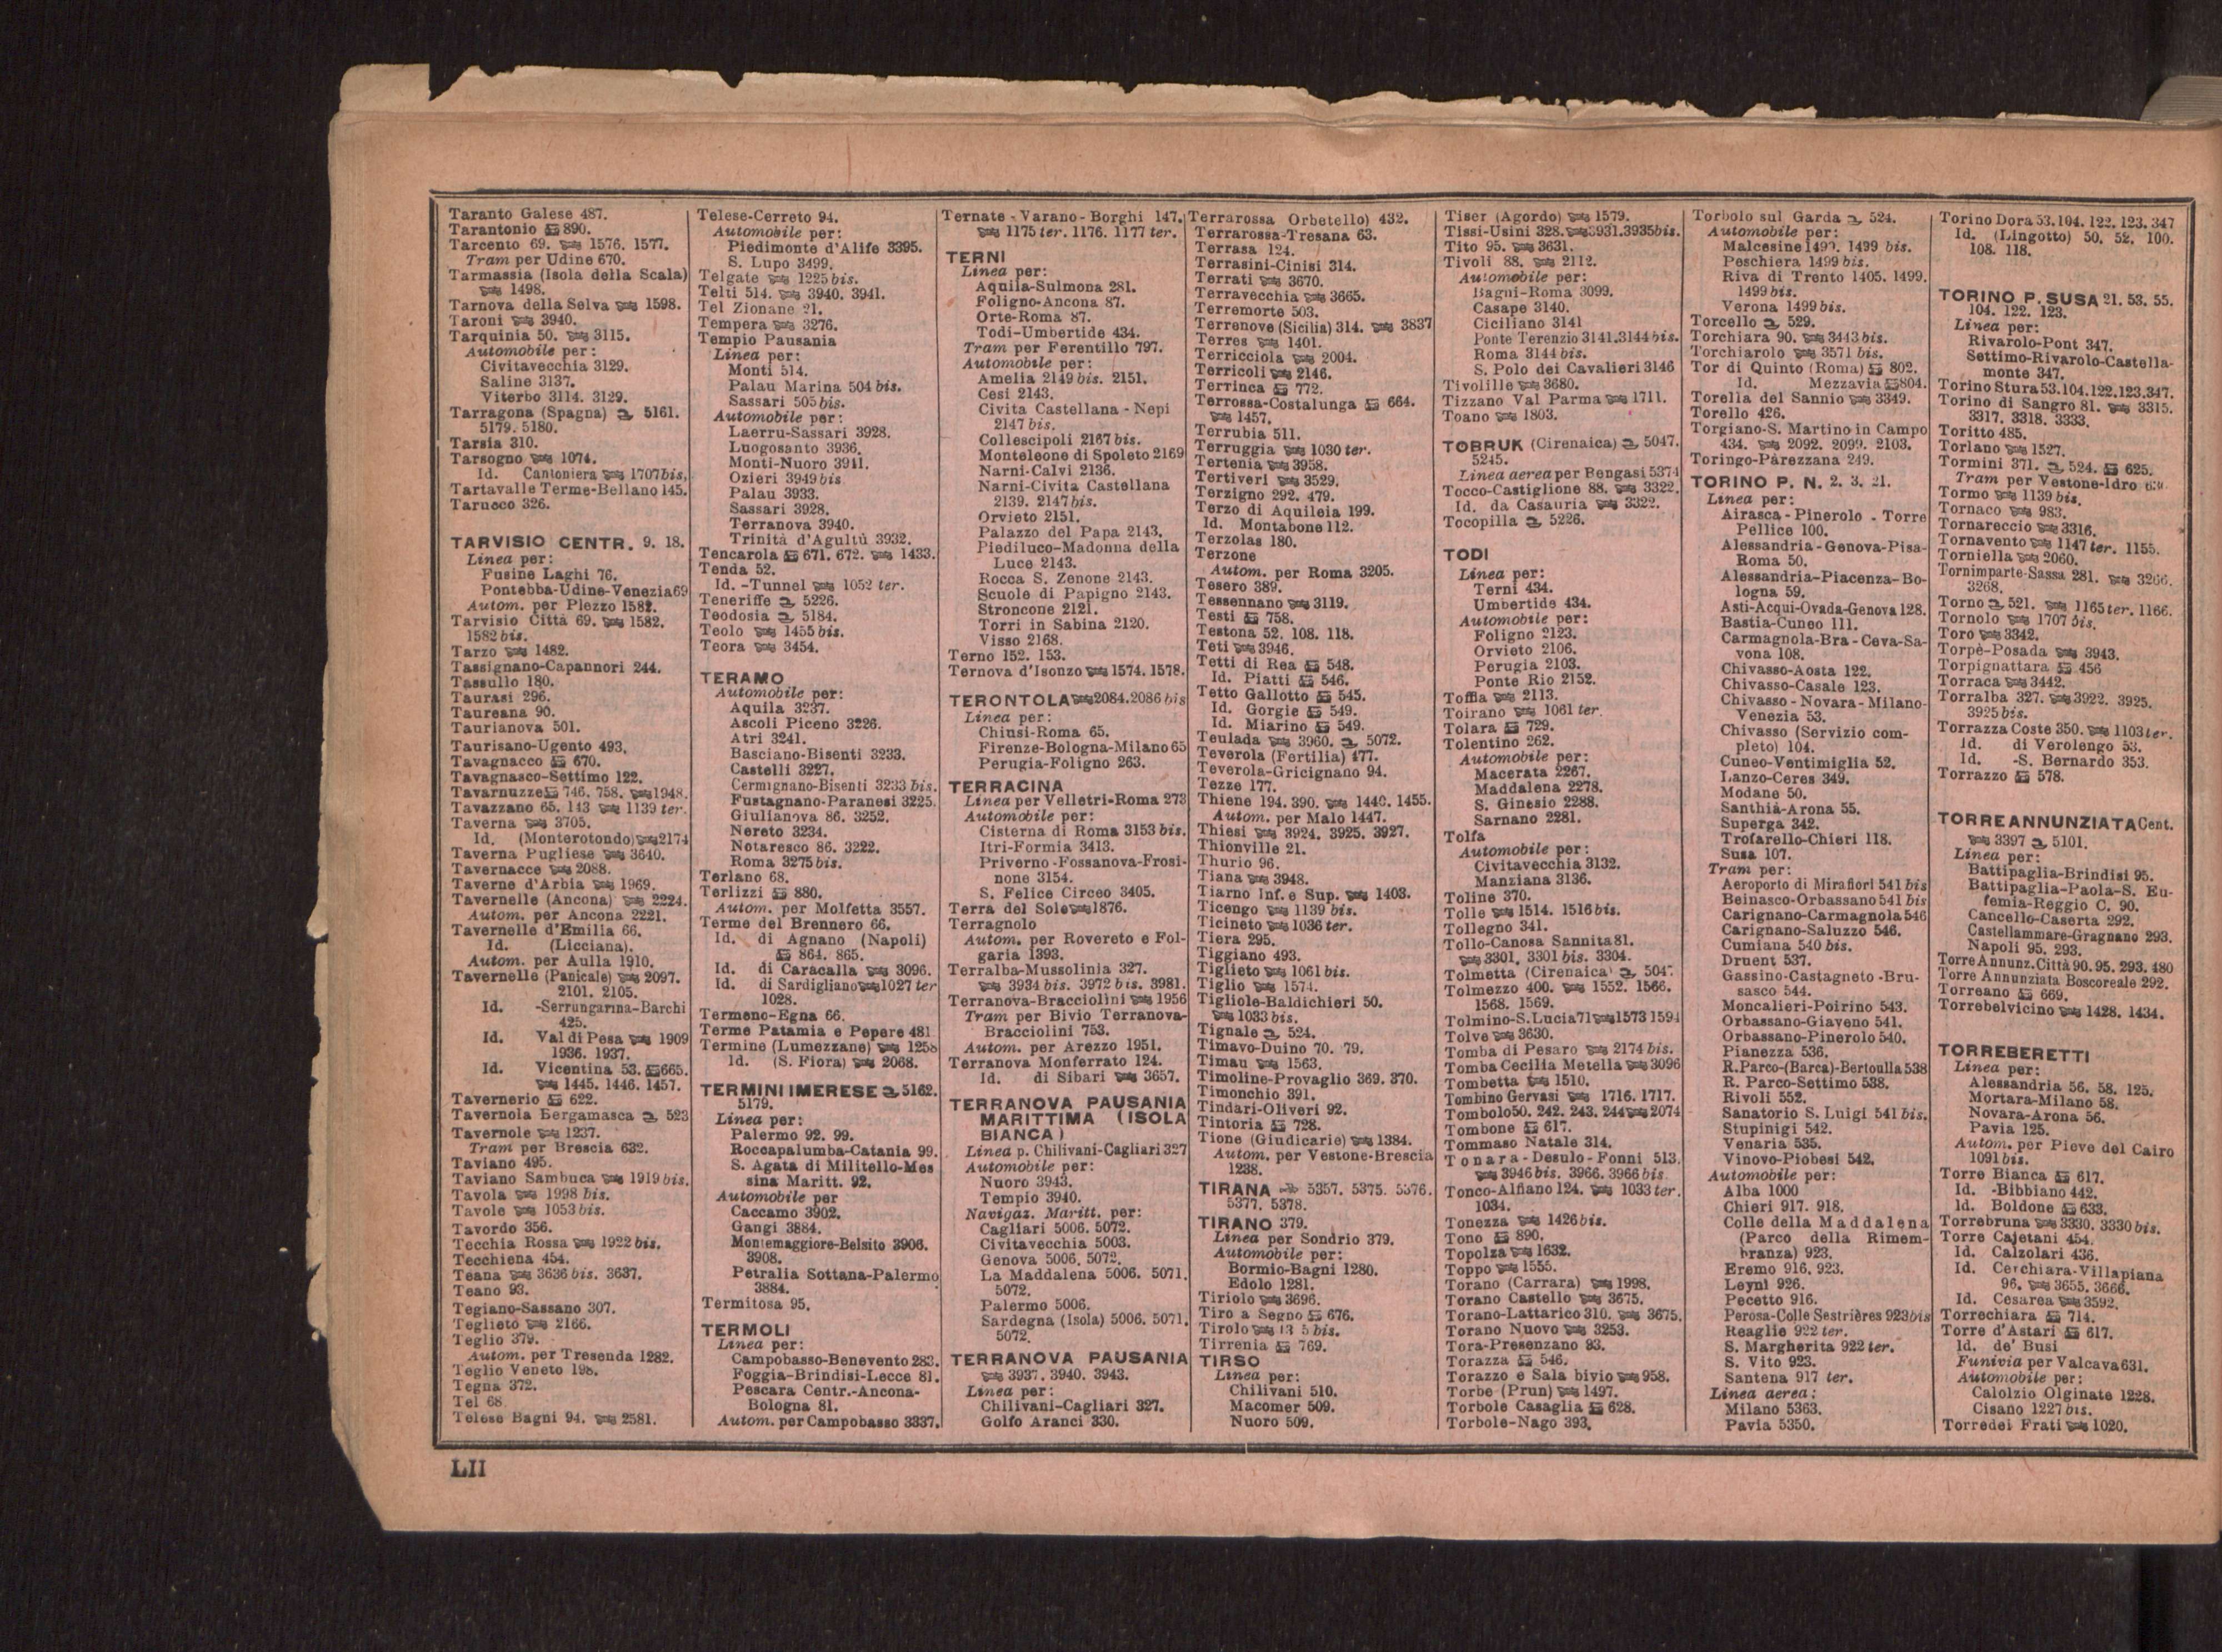 Taranto Galese 487.
Tarantonio 890.
Tarcento 69. 1576. 1577.
Tram per Udine 670.
Tarmassia (Isola della Scala)
1498.
Tarnova della Selva 1598.
Taroni 3940.
Tarquinia 50. 3115.
Automobile per:
Civitavecchia 3129.
Saline 3137.
Viterbo 3114. 3129.
Tarragona (Spagna) 5161.
5179. 5180.
Tarsia 310.
Tarsogno 1074.
Id. Cantoniera 1707 bis.
Tartavalle Terme-Bellano 145.
Tarucco 326.
TARVISIO CENTR. 9. 18.
Linea per:
Fusine Laghi 76.
Pontebba-Udine-Venezia 69
Autom. per Plezzo 1582.
Tarvisio Città 69. 1582.
1582 bis.
Tarzo 1482.
Tassignano-Capannori 244.
Tassullo 180.
Taurasi 296.
Taureana 90.
Taurianova 501.
Taurisano-Ugento 493.
Tavagnacco 670.
Tavagnasco-Settimo 122.
Tavarnuzze 746. 758. 1948.
Tavazzano 65. 143 1139 ter.
Taverna 3705.
Id. (Monterotondo) 2174
Taverna Pugliese 3640.
Tavernacce 2088.
Taverne d'Arbia 1969.
Tavernelle (Ancona) 2224.
Autom. per Ancona 2221.
Tavernelle d'Emilia 66.
Id. (Licciana).
Autom. per Aulla 1910.
Tavernelle (Panicale) 2097.
2101. 2105.
Id. -Serrungarina-Barchi
425.
Id. Val di Pesa 1909
1936. 1937.
Id. Vicentina 53. 665.
1445. 1446. 1457.
Tavernerio 622.
Tavernola Bergamasca 523
Tavernole 1237.
Tram per Brescia 632.
Taviano 495.
Taviano Sambuca 1919 bis.
Tavola 1998 bis.
Tavole 1053 bis.
Tavordo 356.
Tecchia Rossa 1922 bis.
Tecchiena 454.
Teana 3636 bis. 3637.
Teano 93.
Tegiano-Sassano 307.
Teglieto 2166.
Teglio 379.
Autom. per Tresenda 1282.
Teglio Veneto 198.
Tegna 372.
Tel 68
Telese Bagni 94. 2581.
Telese-Cerreto 94.
Automobile per:
Piedimonte d'Alife 3395.
S. Lupo 3499.
Telgate 1225 bis.
Telti 514. 3940. 3941.
Tel Zionane 21.
Tempera 3276.
Tempio Pausania
Linea per:
Monti 514.
Palau Marina 504 bis.
Sassari 505 bis.
Automobile per:
Laerru-Sassari 3928.
Luogosanto 3936.
Monti-Nuoro 3941.
Ozieri 3949 bis
Palau 3933.
Sassari 3928.
Terranova 3940.
Trinità d'Agultù 3932.
Tencarola 671. 672. 1433.
Tenda 52.
Id. -Tunnel 1052 ter.
Teneriffe 5226.
Teodosia 5184.
Teolo 1455 bis.
Teora 3454.
TERAMO
Automobile per:
Aquila 3237.
Ascoli Piceno 3226.
Atri 3241.
Basciano-Bisenti 3233.
Castelli 3227.
Cermignano-Bisenti 3233 bis.
Fustagnano-Paranesi 3225.
Giulianova 86. 3252.
Nereto 3234.
Notaresco 86. 3222.
Roma 3275 bis.
Terlano 68.
Terlizzi 880.
Autom. per Molfetta 3557.
Terme del Brennero 66.
Id. di Agnano (Napoli)
864. 865.
Id. di Caracalla 3096.
Id. di Sardigliano 1027 ter
1028.
Termeno-Egna 66.
Terme Patamia e Pepere 481
Termine (Lumezzane) 1258
Id. (S. Fiora) 2068.
TERMINI IMERESE 5162.
5179.
Linea per:
Palermo 92. 99.
Roccapalumba-Catania 99.
S. Agata di Militello-Mes
sina Maritt. 92.
Automobile per
Caccamo 3902.
Gangi 3884.
Montemaggiore-Belsito 3906.
3908.
Petralia Sottana-Palermo
3884.
Termitosa 95.
TERMOLI
Linea per:
Campobasso-Benevento 283.
Foggia-Brindisi-Lecce 81.
Pescara Centr.-Ancona-
Bologna 81.
Autom. per Campobasso 3337.
Ternate - Varano - Borghi 147.
1175 ter. 1176. 1177 ter.
TERNI
Linea per:
Aquila-Sulmona 281.
Foligno-Ancona 87.
Orte-Roma 87.
Todi-Umbertide 434.
Tram per Ferentillo 797.
Automobile per:
Amelia 2149 bis. 2151.
Cesi 2143.
Civita Castellana - Nepi
2147 bis.
Collescipoli 2167 bis.
Monteleone di Spoleto 2169
Narni-Calvi 2136.
Narni-Civita Castellana
2139. 2147 bis.
Orvieto 2151.
Palazzo del Papa 2143.
Piediluco-Madonna della
Luce 2143.
Rocca S. Zenone 2143.
Scuole di Papigno 2143.
Stroncone 2121.
Torri in Sabina 2120.
Visso 2168.
Terno 152. 153.
Ternova d'Isonzo 1574. 1578.
TERONTOLA 2084. 2086 bis
Linea per:
Chiusi-Roma 65.
Firenze-Bologna-Milano 65
Perugia-Foligno 263.
TERRACINA
Linea per Velletri-Roma 273
Automobile per:
Cisterna di Roma 3153 bis.
Itri-Formia 3413.
Priverno-Fossanova-Frosi-
none 3154.
S. Felice Circeo 3405.
Terra del Sole 1876.
Terragnolo
Autom. per Rovereto e Fol-
garia 1393.
Terralba-Mussolinia 327.
3934 bis. 3972 bis. 3981.
Terranova-Bracciolini 1956
Tram per Bivio Terranova-
Bracciolini 753.
Autom. per Arezzo 1951.
Terranova Monferrato 124.
Id. di Sibari 3657.
TERRANOVA PAUSANIA
MARITTIMA (ISOLA
BIANCA)
Linea p. Chilivani-Cagliari 327
Automobile per:
Nuoro 3943.
Tempio 3940.
Navigaz. Maritt. per:
Cagliari 5006. 5072.
Civitavecchia 5003.
Genova 5006. 5072.
La Maddalena 5006. 5071.
5072.
Palermo 5006.
Sardegna (Isola) 5006. 5071.
5072.
TERRANOVA PAUSANIA
3937. 3940. 3943.
Linea per:
Chilivani-Cagliari 327.
Golfo Aranci 330.
Terrarossa Orbetello) 432.
Terrarossa-Tresana 63.
Terrasa 124.
Terrasini-Cinisi 314.
Terrati 3670.
Terravecchia 3665.
Terremorte 503.
Terrenove (Sicilia) 314. 3837
Terres 1401.
Terricciola 2004.
Terricoli 2146.
Terrinca 772.
Terrossa-Costalunga 664.
1457.
Terrubia 511.
Terruggia 1030 ter.
Tertenia 3958.
Tertiveri 3529.
Terzigno 292. 479.
Terzo di Aquileia 199.
Id. Montabone 112.
Terzolas 180.
Terzone
Autom. per Roma 3205.
Tesero 389.
Tessennano 3119.
Testi 758.
Testona 52. 108. 118.
Teti 3946.
Tetti di Rea 548.
Id. Piatti 546.
Tetto Gallotto 545.
Id. Gorgie 549.
Id. Miarino 549.
Teulada 3960. 5072.
Teverola (Fertilia) 477.
Teverola-Gricignano 94.
Tezze 177.
Thiene 194. 390. 1440. 1455.
Autom. per Malo 1447.
Thiesi 3924. 3925. 3927.
Thionville 21.
Thurio 96.
Tiana 3948.
Tiarno Inf. e Sup. 1403.
Ticengo 1139 bis.
Ticineto 1036 ter.
Tiera 295.
Tiggiano 493.
Tiglieto 1061 bis.
Tiglio 1574.
Tigliole-Baldichieri 50.
1033 bis.
Tignale 524.
Timavo-Duino 70. 79.
Timau 1563.
Timoline-Provaglio 369. 370.
Timonchio 391.
Tindari-Oliveri 92.
Tintoria 728.
Tione (Giudicarie) 1384.
Autom. per Vestone-Brescia
1238.
TIRANA 5357. 5375. 5376.
5377. 5378.
TIRANO 379.
Linea per Sondrio 379.
Automobile per:
Bormio-Bagni 1280.
Edolo 1281.
Tiriolo 3696.
Tiro a Segno 676.
Tirolo bis.
Tirrenia 769.
TIRSO
Linea per:
Chilivani 510.
Macomer 509.
Nuoro 509.
Tiser (Agordo) 1579.
Tissi-Usini 328. 3931. 3935 bis.
Tito 95. 3631.
Tivoli 88. 2112.
Automobile per:
Bagni-Roma 3099.
Casape 3140.
Ciciliano 3141
Ponte Terenzio 3141. 3144 bis.
Roma 3144 bis.
S. Polo dei Cavalieri 3146
Tivolille 3680.
Tizzano Val Parma 1711.
Toano 1803.
TOBRUK (Cirenaica) 5047.
5245.
Linea aerea per Bengasi 5374
Tocco-Castiglione 88. 3322.
Id. da Casauria 3322.
Tocopilla 5226.
TODI
Linea per:
Terni 434.
Umbertide 434.
Automobile per:
Foligno 2123.
Orvieto 2106.
Perugia 2103.
Ponte Rio 2152.
Toffia 2113.
Toirano 1061 ter.
Tolara 729.
Tolentino 262.
Automobile per:
Macerata 2267.
Maddalena 2278.
S. Ginesio 2288.
Sarnano 2281.
Tolfa
Automobile per:
Civitavecchia 3132.
Manziana 3136.
Toline 370.
Tolle 1514. 1516 bis.
Tollegno 341.
Tollo-Canosa Sannita 81.
3301. 3301 bis. 3304.
Tolmetta (Cirenaica) 5047.
Tolmezzo 400. 1552. 1566.
1568. 1569.
Tolmino-S. Lucia 71 1573 1594
Tolve 3630.
Tomba di Pesaro 2174 bis.
Tomba Cecilia Metella 3096
Tombetta 1510.
Tombino Gervasi 1716. 1717.
Tombolo 50. 242. 243. 244 2074
Tombone 617.
Tommaso Natale 314.
Tonara-Desulo-Fonni 513.
3946 bis. 3966. 3966 bis
Tonco-Alfiano 124. 1033 ter.
1034.
Tonezza 1426 bis.
Tono 890.
Topolza 1632.
Toppo 1555.
Torano (Carrara) 1998.
Torano Castello 3675.
Torano-Lattarico 310. 3675.
Torano Nuovo 3253.
Tora-Presenzano 93.
Torazza 546.
Torazzo e Sala bivio 958.
Torbe (Prun) 1497.
Torbole Casaglia 628.
Torbole-Nago 393.
Torbolo sul Garda 524.
Automobile per:
Malcesine 1499. 1499 bis.
Peschiera 1499 bis.
Riva di Trento 1405. 1499.
1499 bis.
Verona 1499 bis.
Torcello 529.
Torchiara 90. 3443 bis.
Torchiarolo 3571 bis.
Tor di Quinto (Roma) 802.
Id. Mezzavia 804.
Torella del Sannio 3349.
Torello 426.
Torgiano-S. Martino in Campo
434. 2092. 2099. 2103.
Toringo-Parezzana 249.
TORINO P. N. 2. 3. 21.
Linea per:
Airasca - Pinerolo - Torre
Pellice 100.
Alessandria-Genova-Pisa-
Roma 50.
Alessandria-Piacenza-Bo-
logna 59.
Asti-Acqui-Ovada-Genova 128.
Bastia-Cuneo 111.
Carmagnola-Bra-Ceva-Sa-
vona 108.
Chivasso-Aosta 122.
Chivasso-Casale 123.
Chivasso-Novara-Milano-
Venezia 53.
Chivasso (Servizio com-
pleto) 104.
Cuneo-Ventimiglia 52.
Lanzo-Ceres 349.
Modane 50.
Santhià-Arona 55.
Superga 342.
Trofarello-Chieri 118.
Susa 107.
Tram per:
Aeroporto di Mirafiori 541 bis
Beinasco-Orbassano 541 bis
Carignano-Carmagnola 546
Carignano-Saluzzo 546.
Cumiana 540 bis.
Druent 537.
Gassino-Castagneto-Bru-
sasco 544.
Moncalieri-Poirino 543.
Orbassano-Giaveno 541.
Orbassano-Pinerolo 540.
Pianezza 536.
R. Parco-(Barca)-Bertoulla 538
R. Parco-Settimo 538.
Rivoli 552.
Sanatorio S. Luigi 541 bis.
Stupinigi 542.
Venaria 535.
Vinovo-Piobesi 542.
Automobile per:
Alba 1000
Chieri 917. 918.
Colle della Maddalena
(Parco della Rimem-
branza) 923.
Eremo 916. 923.
Leynì 926.
Pecetto 916.
Perosa-Colle Sestrières 923 bis
Reaglie 922 ter.
S. Margherita 922 ter.
S. Vito 923.
Santena 917 ter.
Linea aerea:
Milano 5363.
Pavia 5350.
Torino Dora 53. 104. 122. 123. 347
Id. (Lingotto) 50. 52. 100.
108. 118.
TORINO P. SUSA 21. 53. 55.
104. 122. 123.
Linea per:
Rivarolo-Pont 347.
Settimo-Rivarolo-Castella-
monte 347.
Torino Stura 53. 104. 122. 123. 347.
Torino di Sangro 81. 3315.
3317. 3318. 3333.
Toritto 485.
Torlano 1527.
Tormini 371. 524. 625.
Tram per Vestone-Idro
Tormo 1139 bis.
Tornaco 983.
Tornareccio 3316.
Tornavento 1147 ter. 1155.
Torniella 2060.
Tornimparte-Sassa 281. 3266.
3268.
Torno 521. 1165 ter. 1166.
Tornolo 1707 bis.
Toro 3342.
Torpè-Posada 3943.
Torpignattara 456
Torraca 3442.
Torralba 327. 3922. 3925.
3925 bis.
Torrazza Coste 350. 1103 ter.
Id. di Verolengo 53.
Id. -S. Bernardo 353.
Torrazzo 578.
TORRE ANNUNZIATA Cent.
3397 5101.
Linea per:
Battipaglia-Brindisi 95.
Battipaglia-Paola-S. Eu-
femia-Reggio C. 90.
Cancello-Caserta 292.
Castellammare-Gragnano 293.
Napoli 95. 293.
Torre Annunz. Città 90. 95. 293. 480
Torre Annunziata Boscoreale 292.
Torreano 669.
Torrebelvicino 1428. 1434.
TORREBERETTI
Linea per:
Alessandria 56. 58. 125.
Mortara-Milano 58.
Novara-Arona 56.
Pavia 125.
Autom. per Pieve del Cairo
1091 bis.
Torre Bianca 617.
Id. -Bibbiano 442.
Id. Boldone 633.
Torrebruna 3330. 3330 bis.
Torre Cajetani 454.
Id. Calzolari 436.
Id. Cerchiara-Villapiana
96. 3655. 3666.
Id. Cesarea 3592.
Torrechiara 714.
Torre d'Astari 617.
Id. de' Busi
Funivia per Valcava 631.
Automobile per:
Calolzio Olginate 1228.
Cisano 1227 bis.
Torredei Frati 1020.
LII